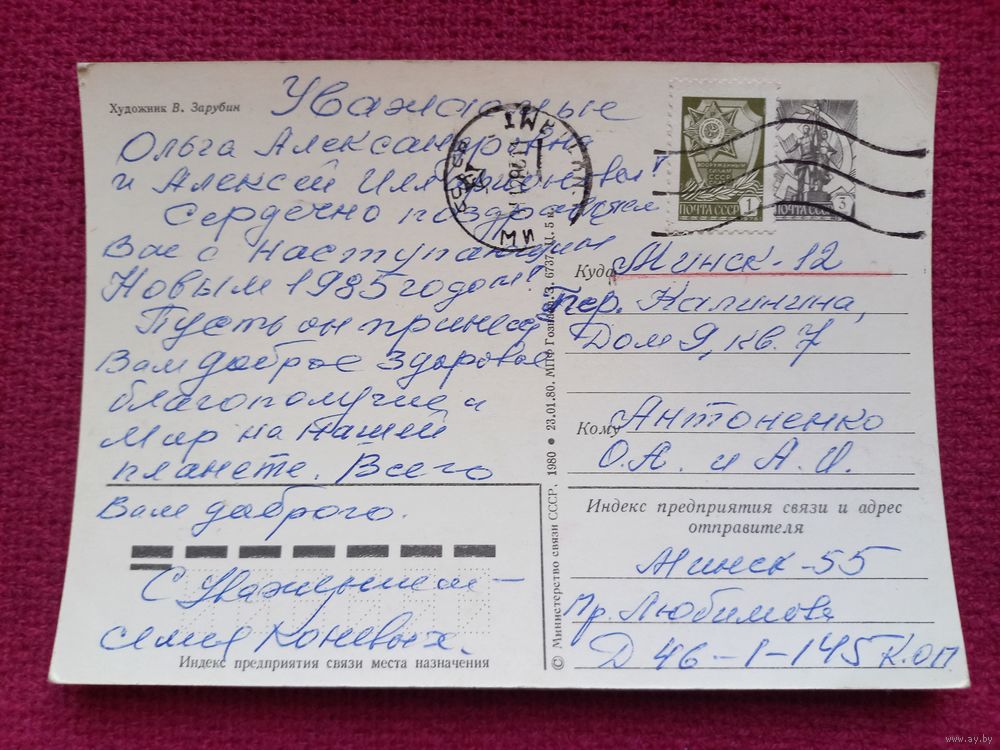 Художник В. Зарубин
Уважаемые
Ольга Александровна
и Алексей
Сердечно поздравляем
Вас с наступающим
Новым 1985 годом!
Пусть он принесёт
Вам доброе здоровье
благополучие и
мир на нашей
планете. Всего
Вам доброго.
С уважением —
семья Коневых.
Индекс предприятия связи места назначения
© Министерство связи СССР. 1980 • 23.01.80. МПФ Гознака. З. 6737. Ц. 5 к.
ПОЧТА СССР 1
ПОЧТА СССР 3
Куда Минск-12
Пер. Калинина,
Дом 9, кв. 7
Кому Антоненко
О.А. и А.И.
Индекс предприятия связи и адрес
отправителя
Минск-55
Пр. Любимова
Д 46-1-145 К.ОП.
www.ay.by